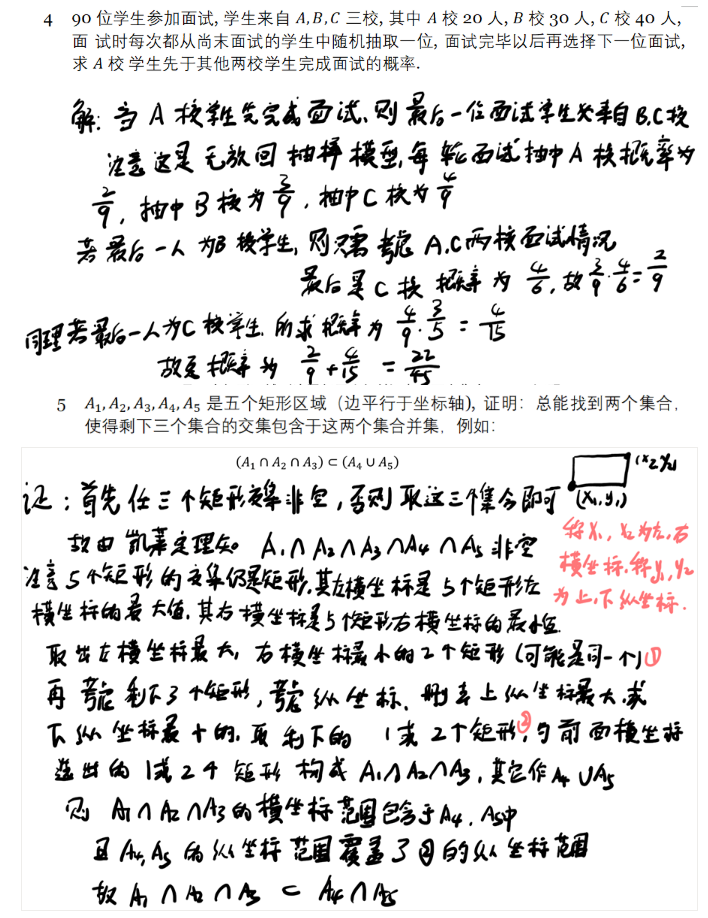 4 90 位学生参加面试, 学生来自 A,B,C 三校, 其中 A 校 20 人, B 校 30 人, C 校 40 人,
面 试时每次都从尚未面试的学生中随机抽取一位, 面试完毕以后再选择下一位面试,
求 A 校 学生先于其他两校学生完成面试的概率.
解: 当 A 校学生先完成面试, 则最后一位面试学生必来自 B.C 校
注意这是无放回抽样模型, 每轮面试抽中 A 校概率为
2/9, 抽中 B 校为 3/9, 抽中 C 校为 4/9
若最后一人为B 校学生, 则只需考虑 A.C两校面试情况
最后是 C 校 概率为 4/6, 故 3/9 · 4/6 = 2/9
同理若最后一人为C 校学生. 所求概率为 4/9 · 3/5 = 4/15
故总概率为 2/9 + 4/15 = 22/45
5 A₁, A₂, A₃, A₄, A₅ 是五个矩形区域（边平行于坐标轴), 证明：总能找到两个集合,
使得剩下三个集合的交集包含于这两个集合并集, 例如:
(A₁ ∩ A₂ ∩ A₃) ⊂ (A₄ ∪ A₅)
(x₂ y₂)
(x₁, y₁)
证: 首先任三个矩形交集非空, 否则取这三个集合即可
故由 凯莱定理知 A₁∩A₂∩A₃∩A₄∩A₅ 非空
称 x₁, x₂ 为左.右
横坐标. 称 y₁, y₂
为上.下纵坐标.
注意 5 个矩形的交集仍是矩形, 其左横坐标是 5 个矩形左
横坐标的最大值, 其右横坐标是5个矩形右横坐标的最小值.
取出左横坐标最大, 右横坐标最小的2个矩形 (可能是同一个)①
再考虑剩下3个矩形, 考虑纵坐标. 删去上纵坐标最大,或
下纵坐标最小的. 取剩下的 1或 2个矩形②, 与前面横坐标
选出的 1或2个 矩形 构成 A₁∩A₂∩A₃, 其它作 A₄ ∪ A₅
则 A₁∩A₂∩A₃的横坐标范围包含于A₄. A₅中
且 A₄, A₅ 的纵坐标范围覆盖了②的纵坐标范围
故 A₁ ∩ A₂ ∩ A₃ ⊂ A₄ ∩ A₅